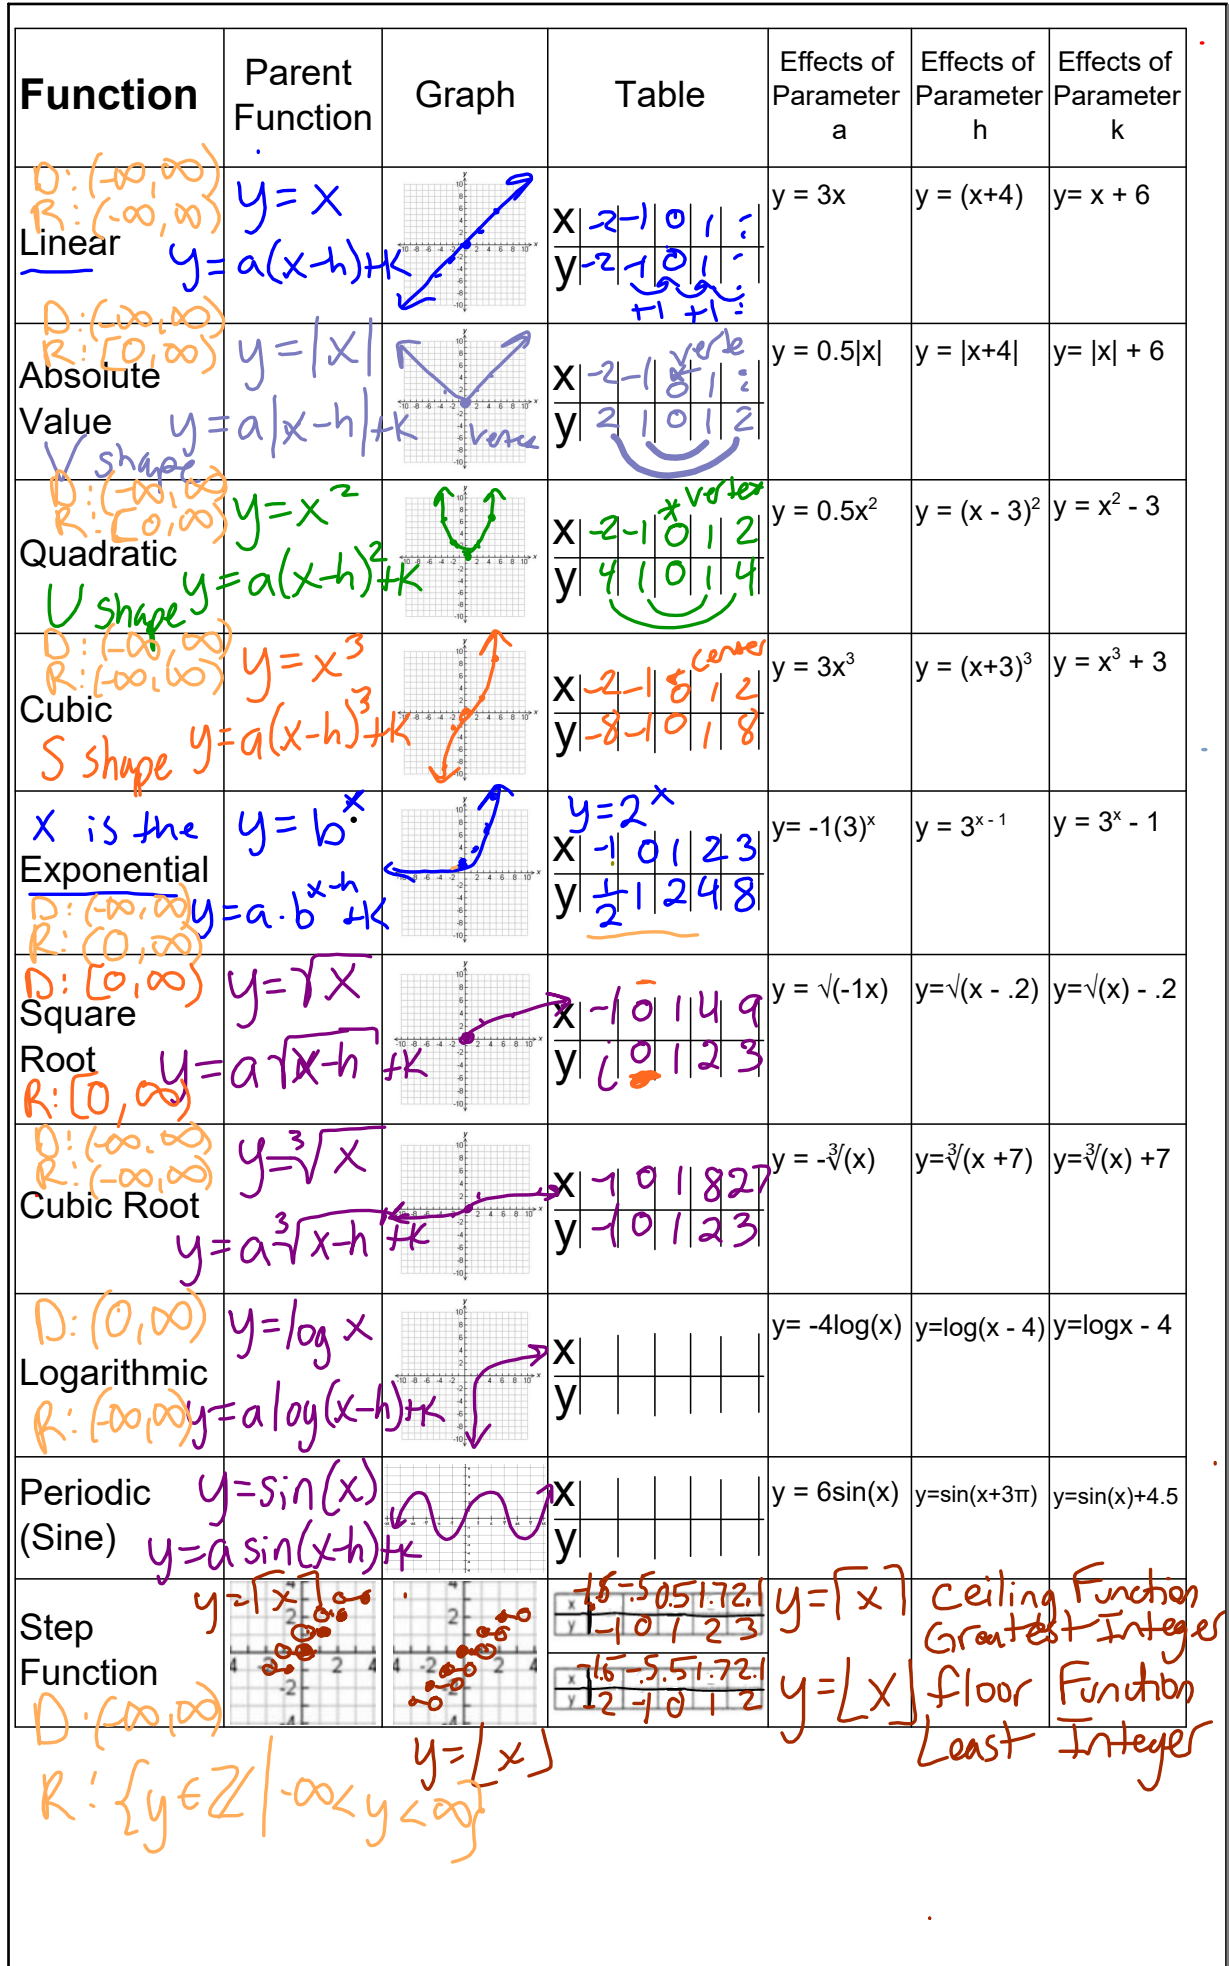 Function
Parent Function
Graph
Table
Effects of Parameter a
Effects of Parameter h
Effects of Parameter k
D: (-∞, ∞)
R: (-∞, ∞)
Linear
y = x
y = a(x-h)+k
x -2 -1 0 1 :
y -2 -1 0 1 :
+1 +1 :
y = 3x
y = (x+4)
y= x + 6
D: (-∞, ∞)
R: [0, ∞)
Absolute Value
V shape
y = |x|
y = a|x-h|+k
vertex
verte
x -2 -1 0 1 :
y 2 1 0 1 2
y = 0.5|x|
y = |x+4|
y= |x| + 6
D: (-∞, ∞)
R: [0, ∞)
Quadratic
U shape
y = x²
y = a(x-h)²+k
* vertex
x -2 -1 0 1 2
y 4 1 0 1 4
y = 0.5x²
y = (x - 3)²
y = x² - 3
D: (-∞, ∞)
R: (-∞, ∞)
Cubic
S shape
y = x³
y = a(x-h)³+k
center
x -2 -1 0 1 2
y -8 -1 0 1 8
y = 3x³
y = (x+3)³
y = x³ + 3
x is the
Exponential
D: (-∞, ∞)
R: (0, ∞)
y = b^x
y = a·b^(x-h) +k
y = 2^x
x -1 0 1 2 3
y 1/2 1 2 4 8
y= -1(3)ˣ
y = 3ˣ ⁻ ¹
y = 3ˣ - 1
D: [0, ∞)
Square Root
R: [0, ∞)
y = √x
y = a√x-h +k
x -1 0 1 4 9
y i 0 1 2 3
y = √(-1x)
y=√(x - .2)
y=√(x) - .2
D: (-∞, ∞)
R: (-∞, ∞)
Cubic Root
y = ∛x
y = a∛x-h +k
x -1 0 1 8 27
y -1 0 1 2 3
y = -∛(x)
y=∛(x +7)
y=∛(x) +7
D: (0, ∞)
Logarithmic
R: (-∞, ∞)
y = log x
y = a log(x-h)+k
x
y
y= -4log(x)
y=log(x - 4)
y=logx - 4
Periodic (Sine)
y = sin(x)
y = a sin(x-h)+k
x
y
y = 6sin(x)
y=sin(x+3π)
y=sin(x)+4.5
Step Function
D: (-∞, ∞)
R: {y ∈ ℤ | -∞ < y < ∞}
y = ⌈x⌉
x -1.5 -.5 0.5 1.7 2.1
y -1 0 1 2 3
y = ⌈x⌉ Ceiling Function
Greatest Integer
y = ⌊x⌋
x -1.5 -.5 .5 1.7 2.1
y -2 -1 0 1 2
y = ⌊x⌋ floor Function
Least Integer